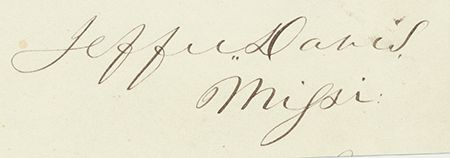 Jeffer Davis,
Missi.